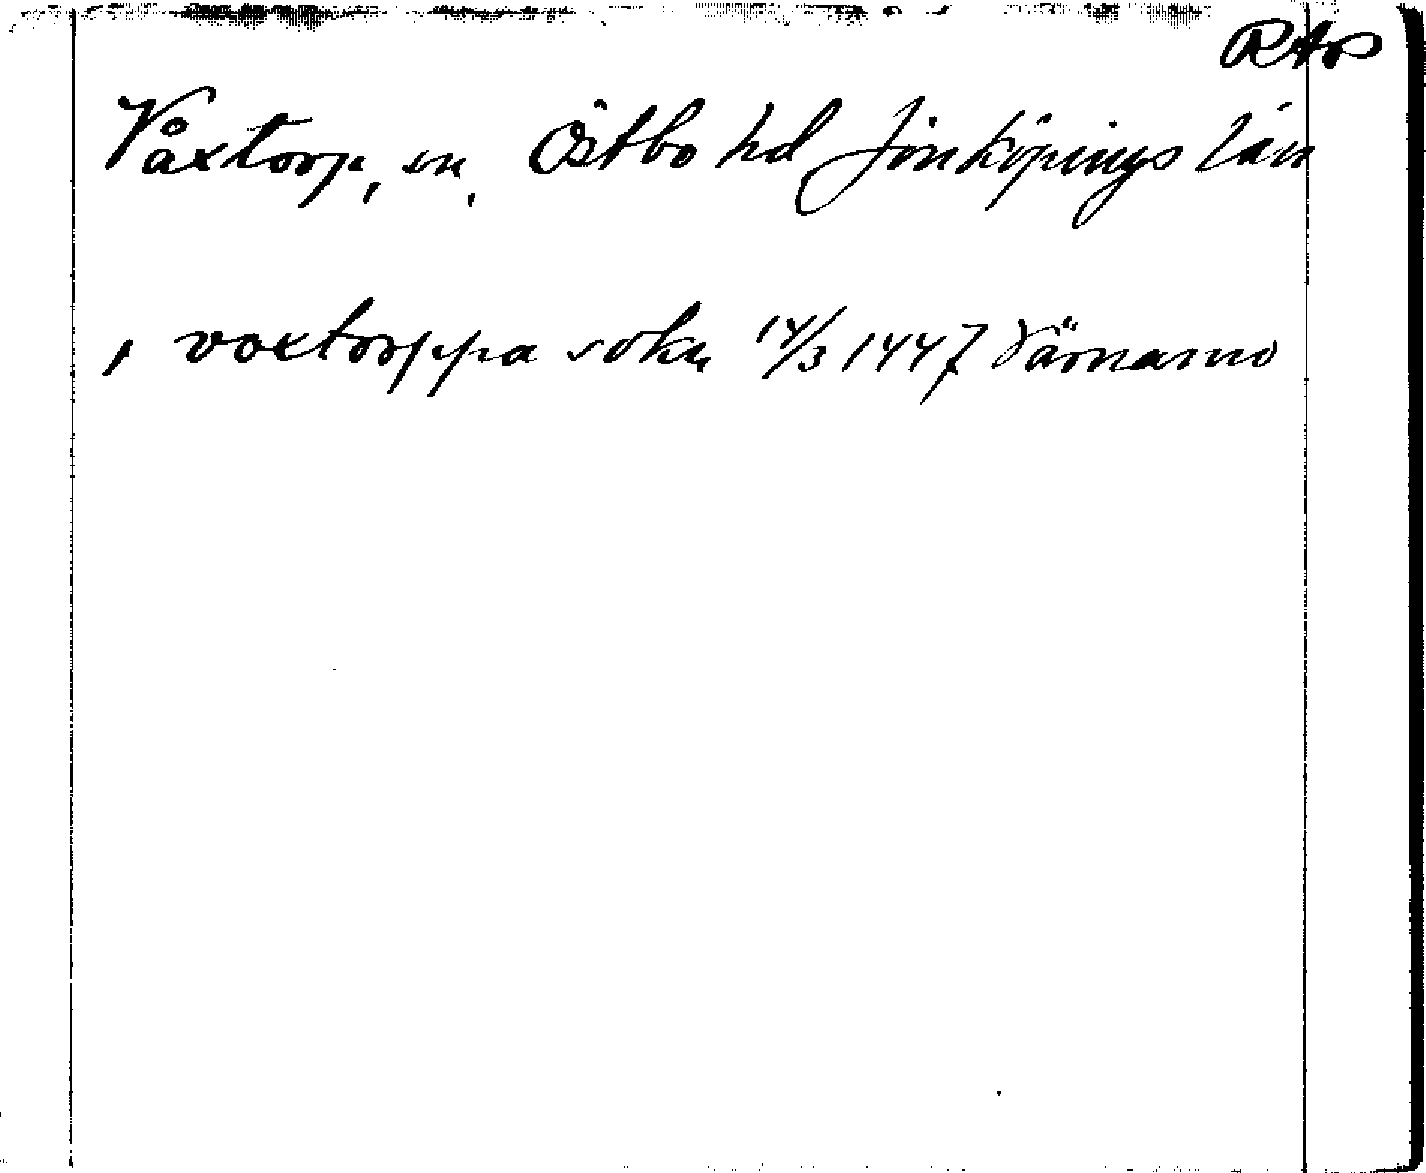 RAp
Våxtorp, sn. Östbo hd Jönköpings län
, voxtorppa sokn 14/3 1447 Värnamo